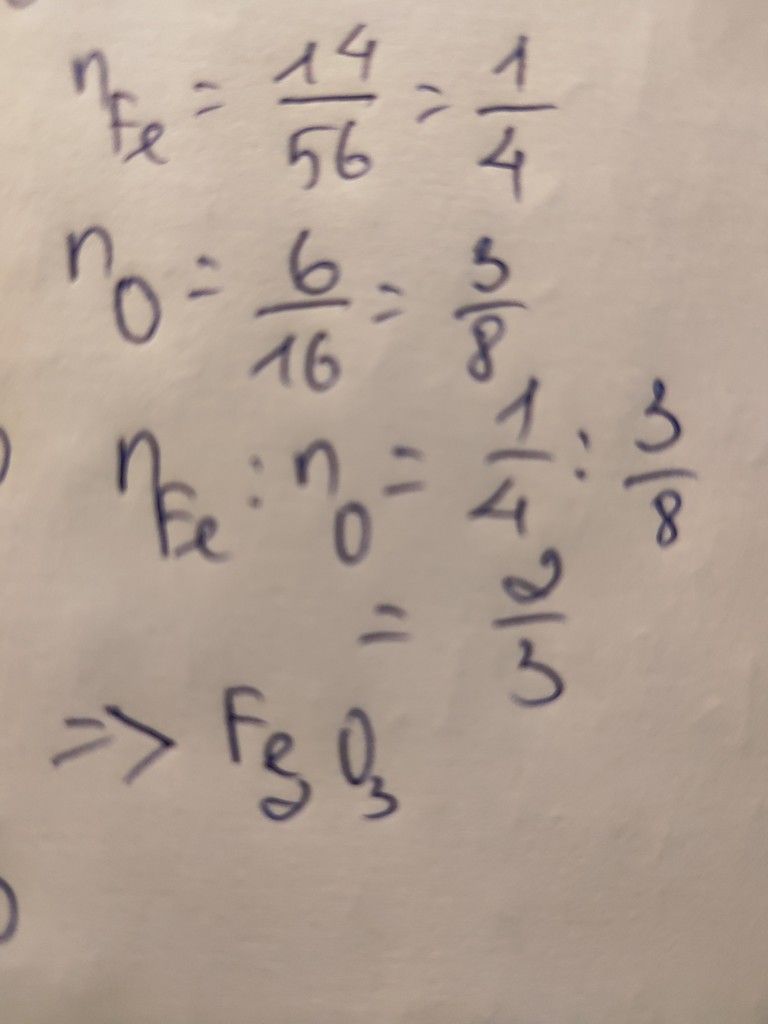 n_Fe = 14/56 = 1/4
n_O = 6/16 = 3/8
n_Fe : n_O = 1/4 : 3/8
= 2/3
=> Fe₂O₃